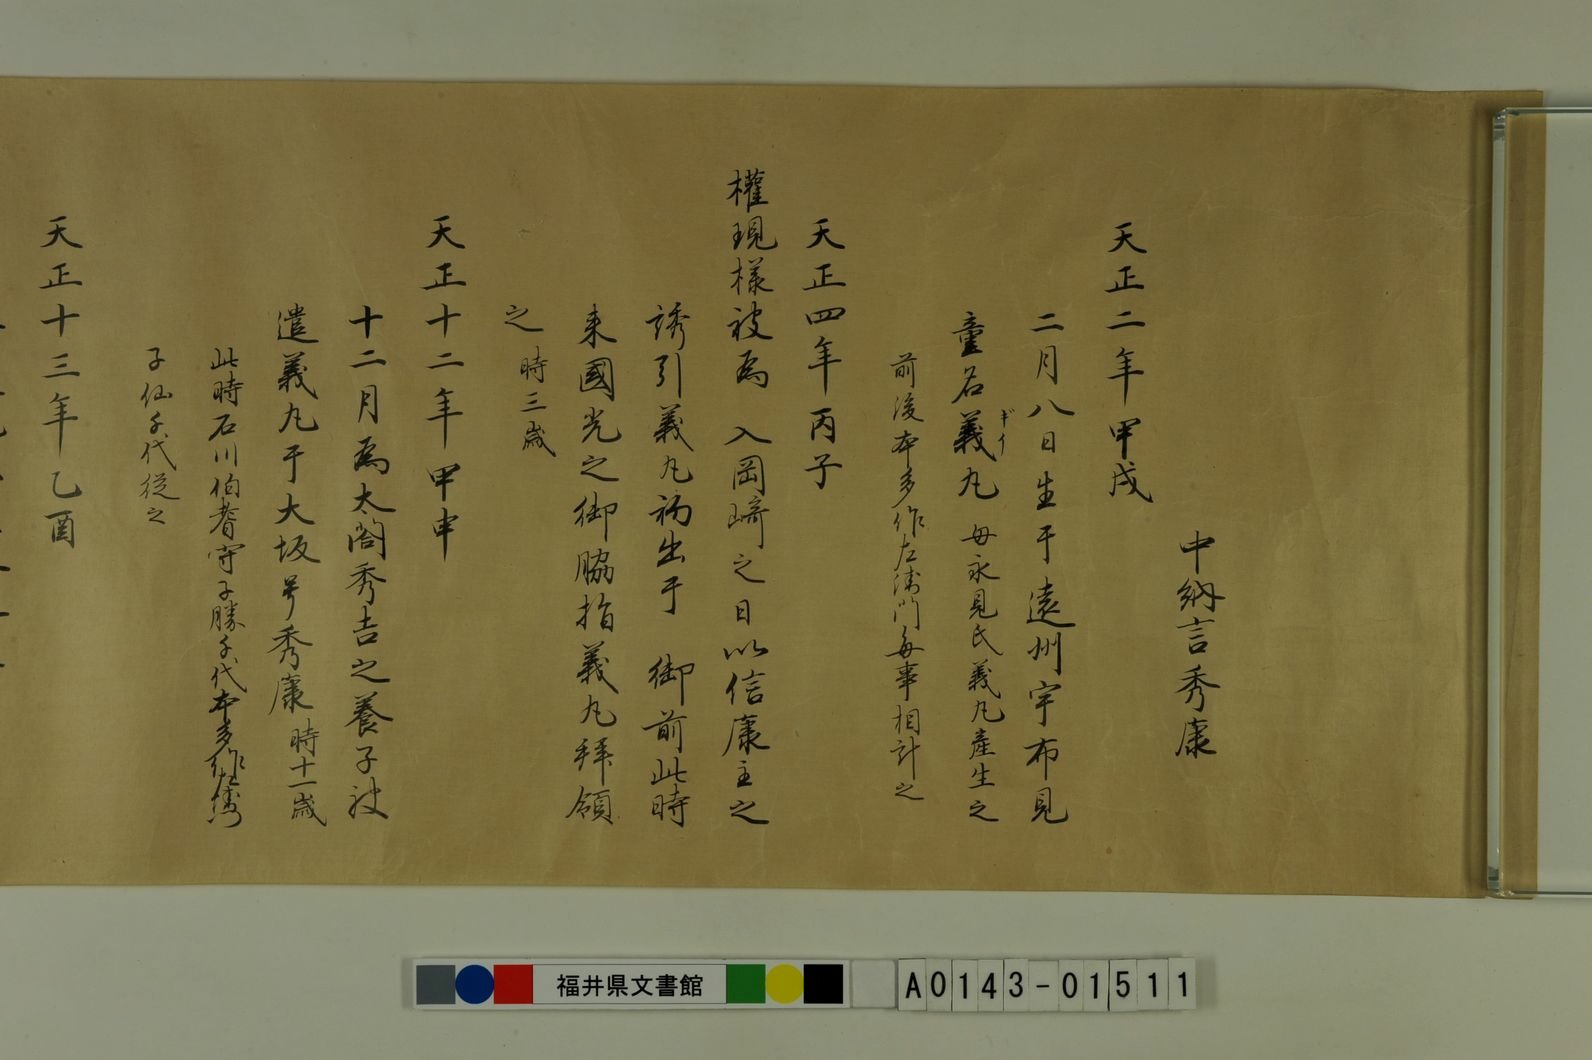 中納言秀康
天正二年甲戌
二月八日生于遠州宇布見
童名義丸 母永見氏義丸産生之
ギイ
前後本多作左衛門毎事相計之
天正四年丙子
權現様被為 入岡﨑之日以信康主之
誘引義丸初出于 御前此時
来國光之御脇指義丸拜領
之 時三歳
天正十二年甲申
十二月為太閤秀吉之養子被
遣義丸于大坂号秀康 時十一歳
此時石川伯耆守子勝千代本多作左衛門
子仙千代從之
天正十三年乙酉
福井県文書館
A0143-01511